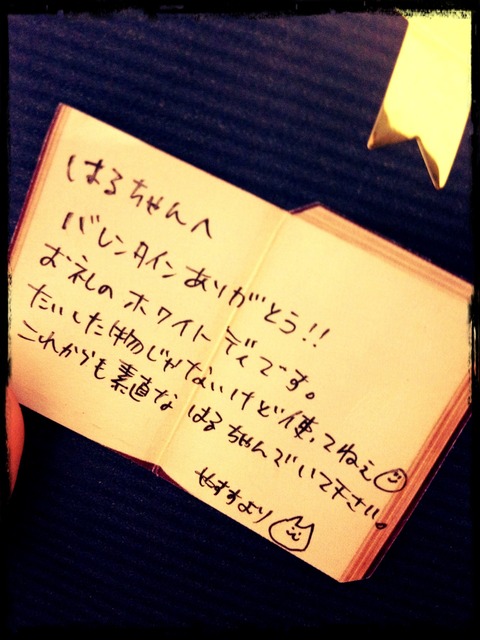 はるちゃんへ
バレンタインありがとう!!
お礼のホワイトディです。
たいした物じゃないけど使ってねぇ
これからも素直なはるちゃんでいて下さい。
せすすより